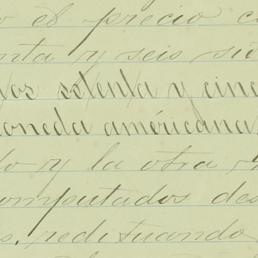 o el precio c
nta y seis sie
os setenta y cinc
oneda américana
lo y la otra
omputados des
s. redituando